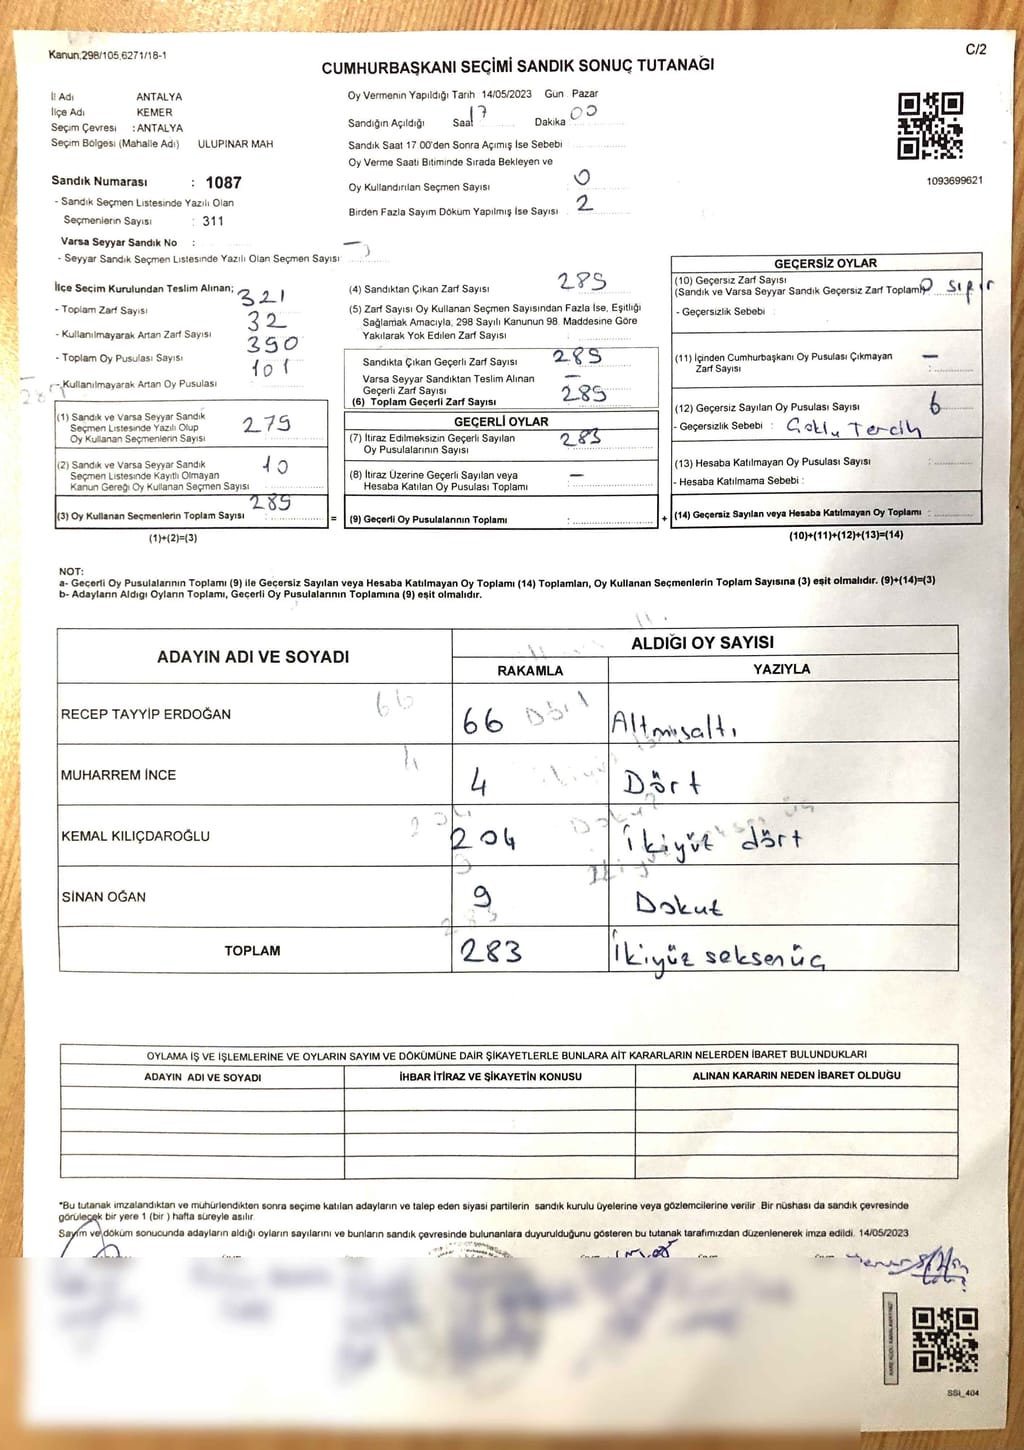 Kanun,298/105,6271/18-1
C/2
CUMHURBAŞKANI SEÇİMİ SANDIK SONUÇ TUTANAĞI
İl Adı ANTALYA
İlçe Adı KEMER
Seçim Çevresi : ANTALYA
Seçim Bölgesi (Mahalle Adı) ULUPINAR MAH
Sandık Numarası : 1087
- Sandık Seçmen Listesinde Yazılı Olan
Seçmenlerin Sayısı : 311
Varsa Seyyar Sandık No :
- Seyyar Sandık Seçmen Listesinde Yazılı Olan Seçmen Sayısı: —
Oy Vermenin Yapıldığı Tarih 14/05/2023 Gün Pazar
Sandığın Açıldığı Saat 17 Dakika 00
Sandık Saat 17.00'den Sonra Açımış İse Sebebi
Oy Verme Saati Bitiminde Sırada Bekleyen ve
Oy Kullandırılan Seçmen Sayısı : 0
Birden Fazla Sayım Döküm Yapılmış İse Sayısı : 2
1093699621
İlçe Seçim Kurulundan Teslim Alınan;
- Toplam Zarf Sayısı 321
- Kullanılmayarak Artan Zarf Sayısı 32
- Toplam Oy Pusulası Sayısı 390
- Kullanılmayarak Artan Oy Pusulası 101
(1) Sandık ve Varsa Seyyar Sandık
Seçmen Listesinde Yazılı Olup
Oy Kullanan Seçmenlerin Sayısı 279
(2) Sandık ve Varsa Seyyar Sandık
Seçmen Listesinde Kayıtlı Olmayan
Kanun Gereği Oy Kullanan Seçmen Sayısı 10
(3) Oy Kullanan Seçmenlerin Toplam Sayısı : 289
(1)+(2)=(3)
(4) Sandıktan Çıkan Zarf Sayısı : 289
(5) Zarf Sayısı Oy Kullanan Seçmen Sayısından Fazla İse, Eşitliği
Sağlamak Amacıyla, 298 Sayılı Kanunun 98. Maddesine Göre
Yakılarak Yok Edilen Zarf Sayısı :
Sandıkta Çıkan Geçerli Zarf Sayısı 289
Varsa Seyyar Sandıktan Teslim Alınan
Geçerli Zarf Sayısı —
(6) Toplam Geçerli Zarf Sayısı 289
GEÇERLİ OYLAR
(7) İtiraz Edilmeksizin Geçerli Sayılan
Oy Pusulalarının Sayısı : 283
(8) İtiraz Üzerine Geçerli Sayılan veya
Hesaba Katılan Oy Pusulası Toplamı : —
= (9) Geçerli Oy Pusulalarının Toplamı :
GEÇERSİZ OYLAR
(10) Geçersiz Zarf Sayısı
(Sandık ve Varsa Seyyar Sandık Geçersiz Zarf Toplamı) 0 sıfır
- Geçersizlik Sebebi :
(11) İçinden Cumhurbaşkanı Oy Pusulası Çıkmayan
Zarf Sayısı : —
(12) Geçersiz Sayılan Oy Pusulası Sayısı : 6
- Geçersizlik Sebebi : Çoklu Tercih
(13) Hesaba Katılmayan Oy Pusulası Sayısı :
- Hesaba Katılmama Sebebi :
+ (14) Geçersiz Sayılan veya Hesaba Katılmayan Oy Toplamı :
(10)+(11)+(12)+(13)=(14)
NOT:
a- Geçerli Oy Pusulalarının Toplamı (9) ile Geçersiz Sayılan veya Hesaba Katılmayan Oy Toplamı (14) Toplamları, Oy Kullanan Seçmenlerin Toplam Sayısına (3) eşit olmalıdır. (9)+(14)=(3)
b- Adayların Aldığı Oyların Toplamı, Geçerli Oy Pusulalarının Toplamına (9) eşit olmalıdır.
ADAYIN ADI VE SOYADI ALDIĞI OY SAYISI
RAKAMLA YAZIYLA
RECEP TAYYİP ERDOĞAN 66 Altmışaltı
MUHARREM İNCE 4 Dört
KEMAL KILIÇDAROĞLU 204 İkiyüz dört
SİNAN OĞAN 9 Dokuz
TOPLAM 283 İkiyüz seksenüç
OYLAMA İŞ VE İŞLEMLERİNE VE OYLARIN SAYIM VE DÖKÜMÜNE DAİR ŞİKAYETLERLE BUNLARA AİT KARARLARIN NELERDEN İBARET BULUNDUKLARI
ADAYIN ADI VE SOYADI İHBAR İTİRAZ VE ŞİKAYETİN KONUSU ALINAN KARARIN NEDEN İBARET OLDUĞU
*Bu tutanak imzalandıktan ve mühürlendikten sonra seçime katılan adayların ve talep eden siyasi partilerin sandık kurulu üyelerine veya gözlemcilerine verilir. Bir nüshası da sandık çevresinde
görülecek bir yere 1 (bir ) hafta süreyle asılır.
Sayım ve döküm sonucunda adayların aldığı oyların sayılarını ve bunların sandık çevresinde bulunanlara duyurulduğunu gösteren bu tutanak tarafımızdan düzenlenerek imza edildi. 14/05/2023
SSI_404